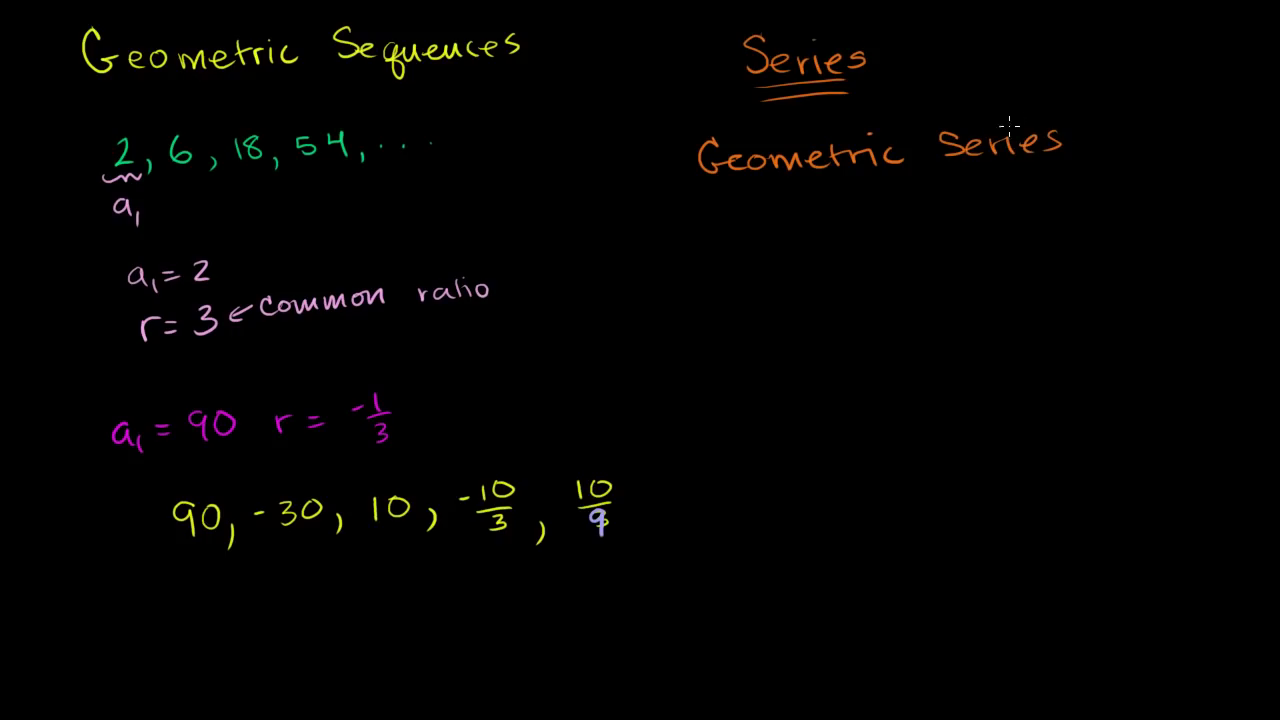 Geometric Sequences
2, 6, 18, 54, ...
a₁
a₁ = 2
r = 3 ← common ratio
a₁ = 90 r = -1/3
90, -30, 10, -10/3, 10/9
Series
Geometric Series